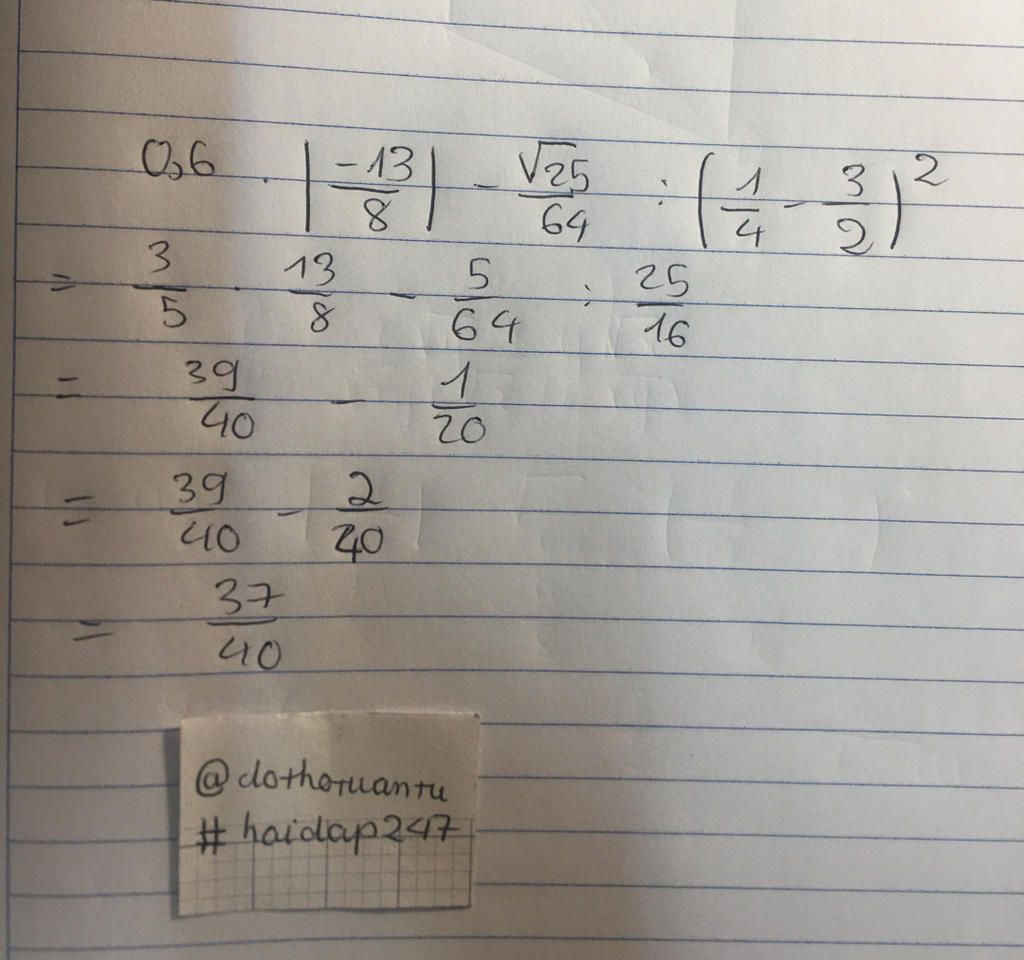 0,6 · |-13/8| - √25/64 : (1/4 - 3/2)²
= 3/5 · 13/8 - 5/64 : 25/16
= 39/40 - 1/20
= 39/40 - 2/40
= 37/40
@dothotuantu
# haidap247